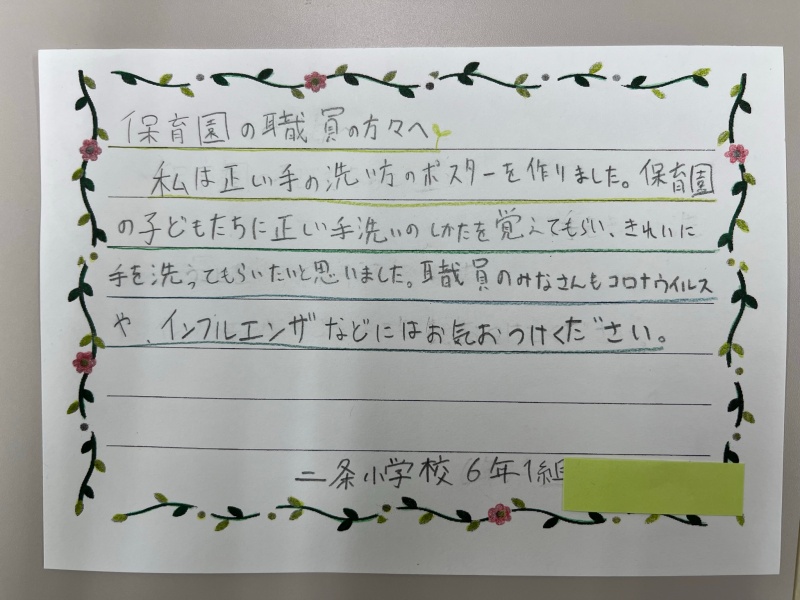 保育園の職員の方々へ
私は正しい手の洗い方のポスターを作りました。保育園
の子どもたちに正しい手洗いのしかたを覚えてもらい、きれいに
手を洗ってもらいたいと思いました。職員のみなさんもコロナウイルス
や、インフルエンザなどにはお気おつけください。
二条小学校6年1組